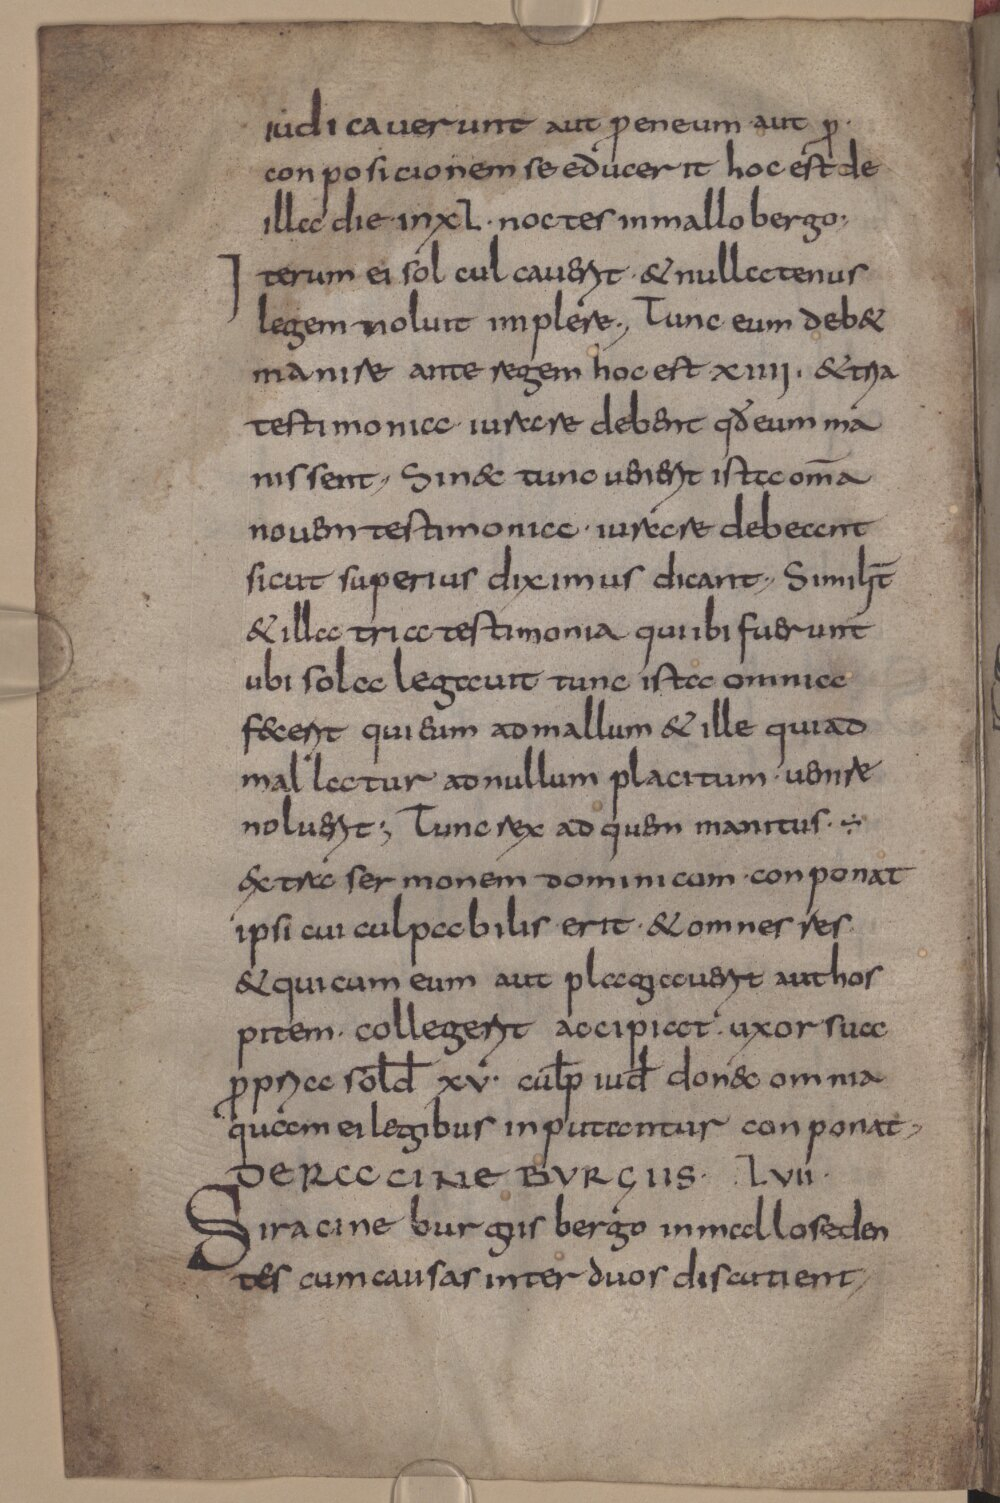 iudicauerunt aut peneum aut p·
conposicionem se educerit hoc est de
illa die in xl· noctes in mallobergo;
Iterum ei solculcauerit· & nullatenus
legem noluit implere·, Tunc eum deb&
manire ante regem hoc est xiiii· & tria
testimonia· iurare debent qd eum ma
nissent, Si nec tunc uenerit ista om̄a
nouem testimonia· iurare debeant
sicut superius diximus dicant, Simiłt
& illa tria testimonia qui ibi fuerunt
ubi sole legauit tunc ista omnia
fecerit qui eum ad mallum & ille qui ad
mallatur ad nullum placitum· uenire
noluerit; Tunc rex ad quem manitus·
extra sermonem dominicum· conponat
ipsi cui culpabilis erit· & omnes res·
& quicum eum aut plagauerit aut hos
pitem· collegerit accipiat· uxor sua
ppria sold xv· culp iud donec omnia
quem ei legibus inputantur conponat,
DE RACINEBURGIIS· LVII·
Si racineburgiis bergo in mallo seden
tes cum causas inter duos discutient,